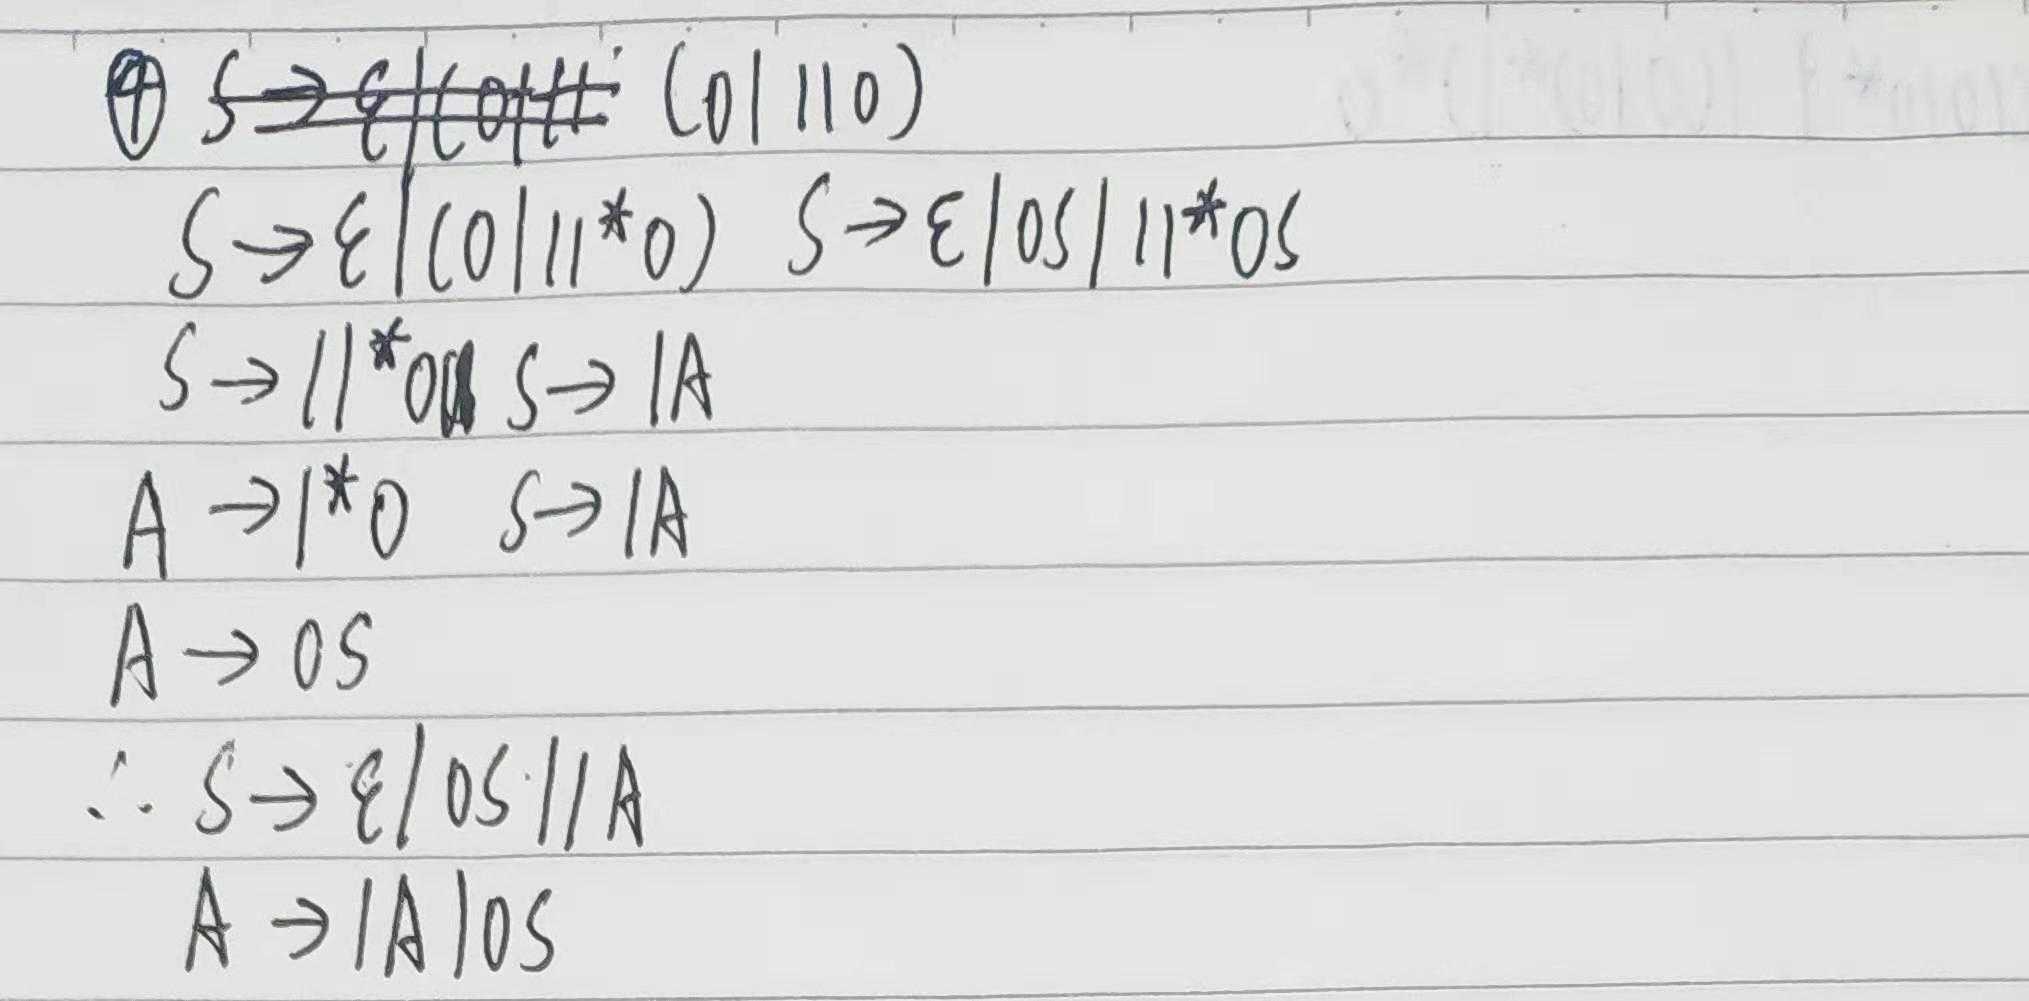 ④ (0|110)
S→ε|(0|11*0) S→ε|0S|11*0S
S→11*0 S→1A
A→1*0 S→1A
A→0S
∴ S→ε|0S|1A
A→1A|0S